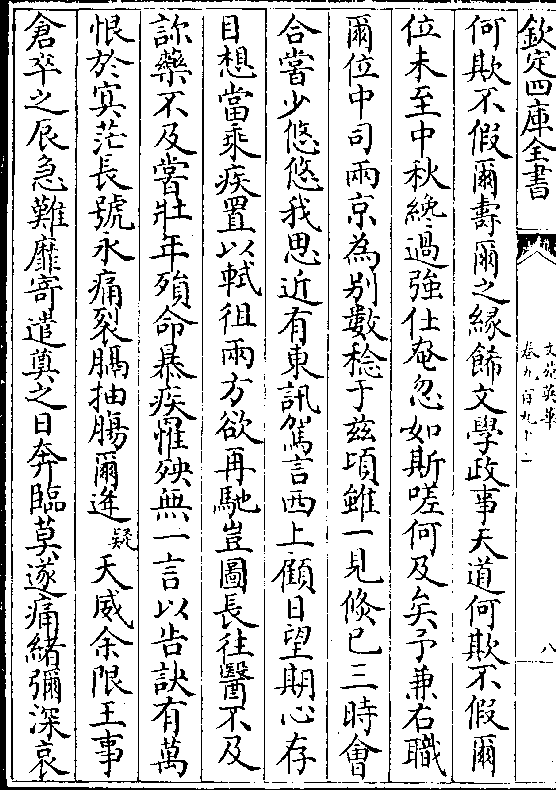 欽定四庫全書
文苑英華
卷九百九十一
八
何欺不假爾壽爾之緣飾文學政事天道何欺不假爾
位未至中秋纔過強仕奄忽如斯嗟何及矣予兼右職
爾位中司兩京為别數稔于兹頃雖一見倐已三時㑹
合嘗少悠悠我思近有東訊駕言西上顧日望期心存
目想當乘疾置以軾徂兩方欲再馳豈圖長往醫不及
診藥不及嘗壯年殞命暴疾罹殃無一言以告訣有萬
恨於㝠茫長號永痛裂膈抽腸爾迯疑天威余限王事
倉卒之辰急難靡寄遣奠之日奔臨莫遂痛緒彌深哀